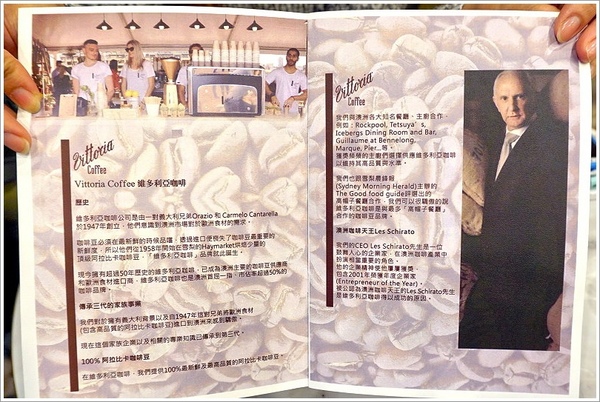 Vittoria
Coffee
Vittoria Coffee 維多利亞咖啡
歷史
維多利亞咖啡公司是由一對義大利兄弟Orazio 和 Carmelo Cantarella
於1947年創立，他們意識到澳洲市場對於歐洲食材的需求。
咖啡豆必須在最新鮮的時候品嚐，透過進口便喪失了咖啡豆最重要的
新鮮度，所以他們從1958年開始在雪梨的Haymarket烘焙少量的
頂級阿拉比卡咖啡豆，「維多利亞」品牌就此誕生。
現今擁有超過50年歷史的維多利亞咖啡，已成為澳洲主要的咖啡豆供應商
和歐洲食材進口商，維多利亞咖啡也是澳洲首屈一指，市佔率超過50%的
咖啡品牌。
傳承三代的家族事業
我們對於擁有義大利背景以及自1947年這對兄弟將歐洲食材
(包含高品質的阿拉比卡咖啡豆)進口到澳洲來感到驕傲。
現在這個家族企業以及相關的專業知識已傳承到第三代。
100% 阿拉比卡咖啡豆
在維多利亞咖啡，我們提供100%最新鮮及最高品質的阿拉比卡咖啡豆。
Vittoria
Coffee
我們與澳洲各大知名餐廳，主廚合作，
例如：Rockpool, Tetsuya's,
Icebergs Dining Room and Bar,
Guillaume at Bennelong,
Marque, Pier...等。
獲獎頻頻的主廚們選擇供應維多利亞咖啡
以維持其高品質與水準。
我們也跟雪梨晨鋒報
(Sydney Morning Herald)主辦的
The Good food guide評選出的
高帽子餐廳合作，我們可以很驕傲的說
維多利亞咖啡是與最多「高帽子餐廳」
合作的咖啡豆品牌。
澳洲咖啡天王Les Schirato
我們的CEO Les Schirato先生是一位
鼓舞人心的企業家，在澳洲咖啡產業中
扮演相當重要的角色。
他的企業精神使他屢屢獲獎，
包含2001年榮獲年度企業家
(Entrepreneur of the Year)，
被公認為澳洲咖啡天王的Les Schirato先生
是維多利亞咖啡得以成功的原因。